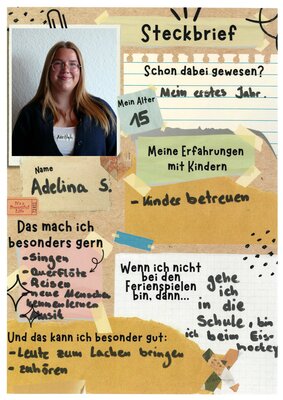 Steckbrief
Schon dabei gewesen?
Mein erstes Jahr
Mein Alter
15
Meine Erfahrungen
mit Kindern
- Kinder betreuen
Name
Adelina S.
Das mach ich
besonders gern
- Singen
- Querflöte
- Reisen
- neue Menschen
kennenlernen
- Musik
Wenn ich nicht
bei den
Ferienspielen
bin, dann...
gehe
ich
in die
Schule, bin
ich beim Eis-
hockey
Und das kann ich besonder gut:
- Leute zum Lachen bringen
- zuhören